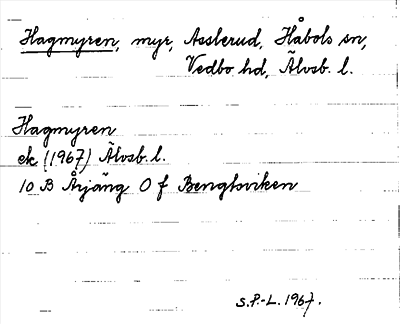 Hagmyren, myr, Asslerud, Håbols sn,
Vedbo hd, Älvsb. l.
Hagmyren
ek (1967) Älvsb. l.
10 B Årjäng O f Bengtsviken
S.P.-L. 1967.